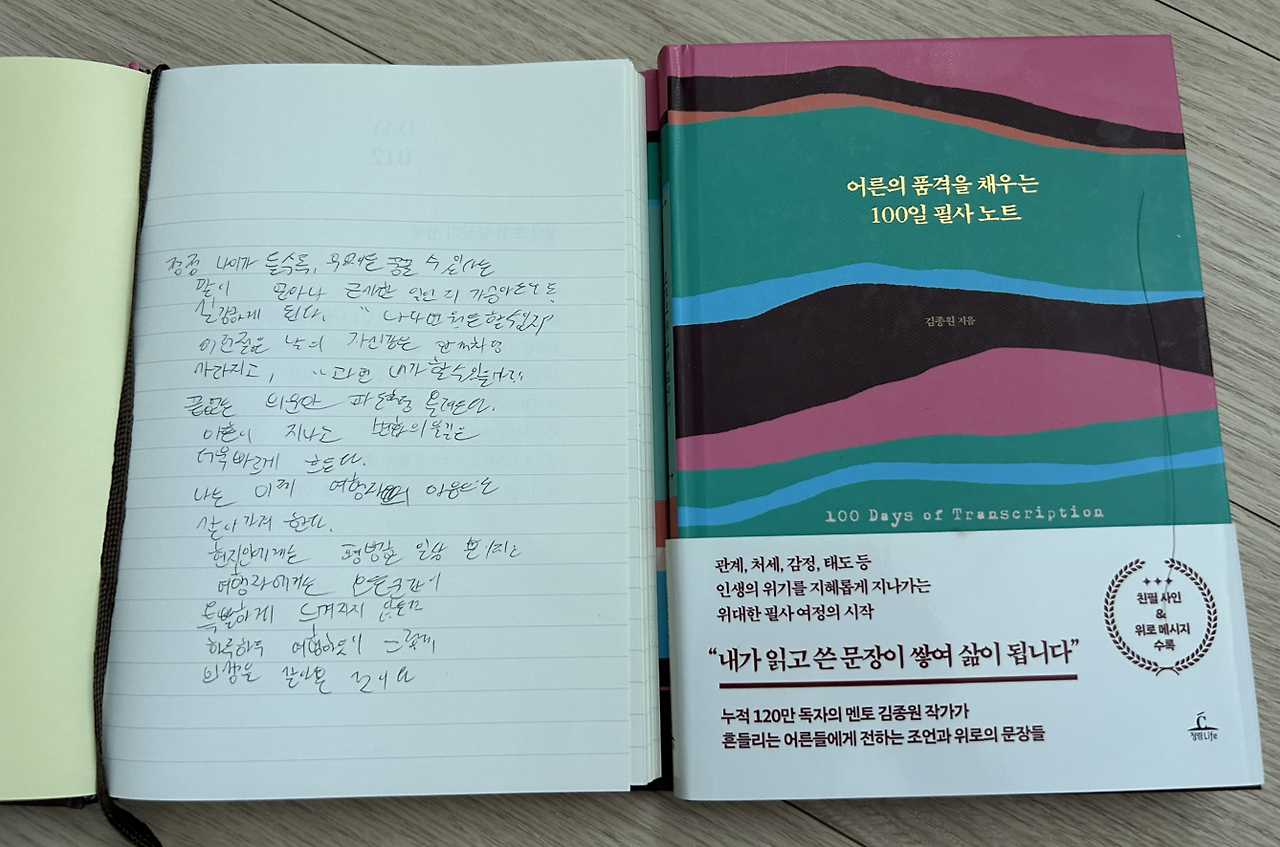 점점 나이가 들수록, 무모해도 꿈꿀 수 있다는
말이 얼마나 근사한 일인지 가슴
실감하게 된다. "나라면 뭐든 할 수 있지"
이런 젊은 날의 자신감은 완전히
사라지고, "과연 내가 할 수 있을까?"
끝없는 의문만 파도처럼 몰려온다.
마흔이 지나도 변화의 물길은
더욱 빠르게 흐른다.
나는 이제 여행자의 마음으로
살아가려 한다.
현지인에게는 평범한 일상
여행자에게는 모든 순간이
특별하게 느껴지지 않는가
하루하루 여행하듯이 그렇게
인생을 살아
DAY
012
어른의 품격을 채우는
100일 필사 노트
김종원 지음
100 Days of Transcription
관계, 처세, 감정, 태도 등
인생의 위기를 지혜롭게 지나가는
위대한 필사 여정의 시작
"내가 읽고 쓴 문장이 쌓여 삶이 됩니다"
누적 120만 독자의 멘토 김종원 작가가
흔들리는 어른들에게 전하는 조언과 위로의 문장들
친필 사인
&
위로 메시지
수록
청림Life